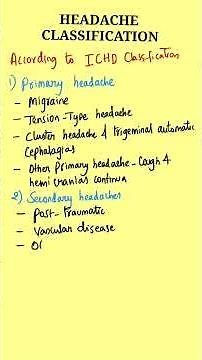 HEADACHE
CLASSIFICATION
According to ICHD Classification
1) Primary headache
- Migraine
- Tension-Type headache
- Cluster headache & Trigeminal automatic
Cephalagias
- Other Primary headache - Cough &
hemi cranias continua
2) Secondary headaches
- Post-Traumatic
- Vascular disease
- Ol